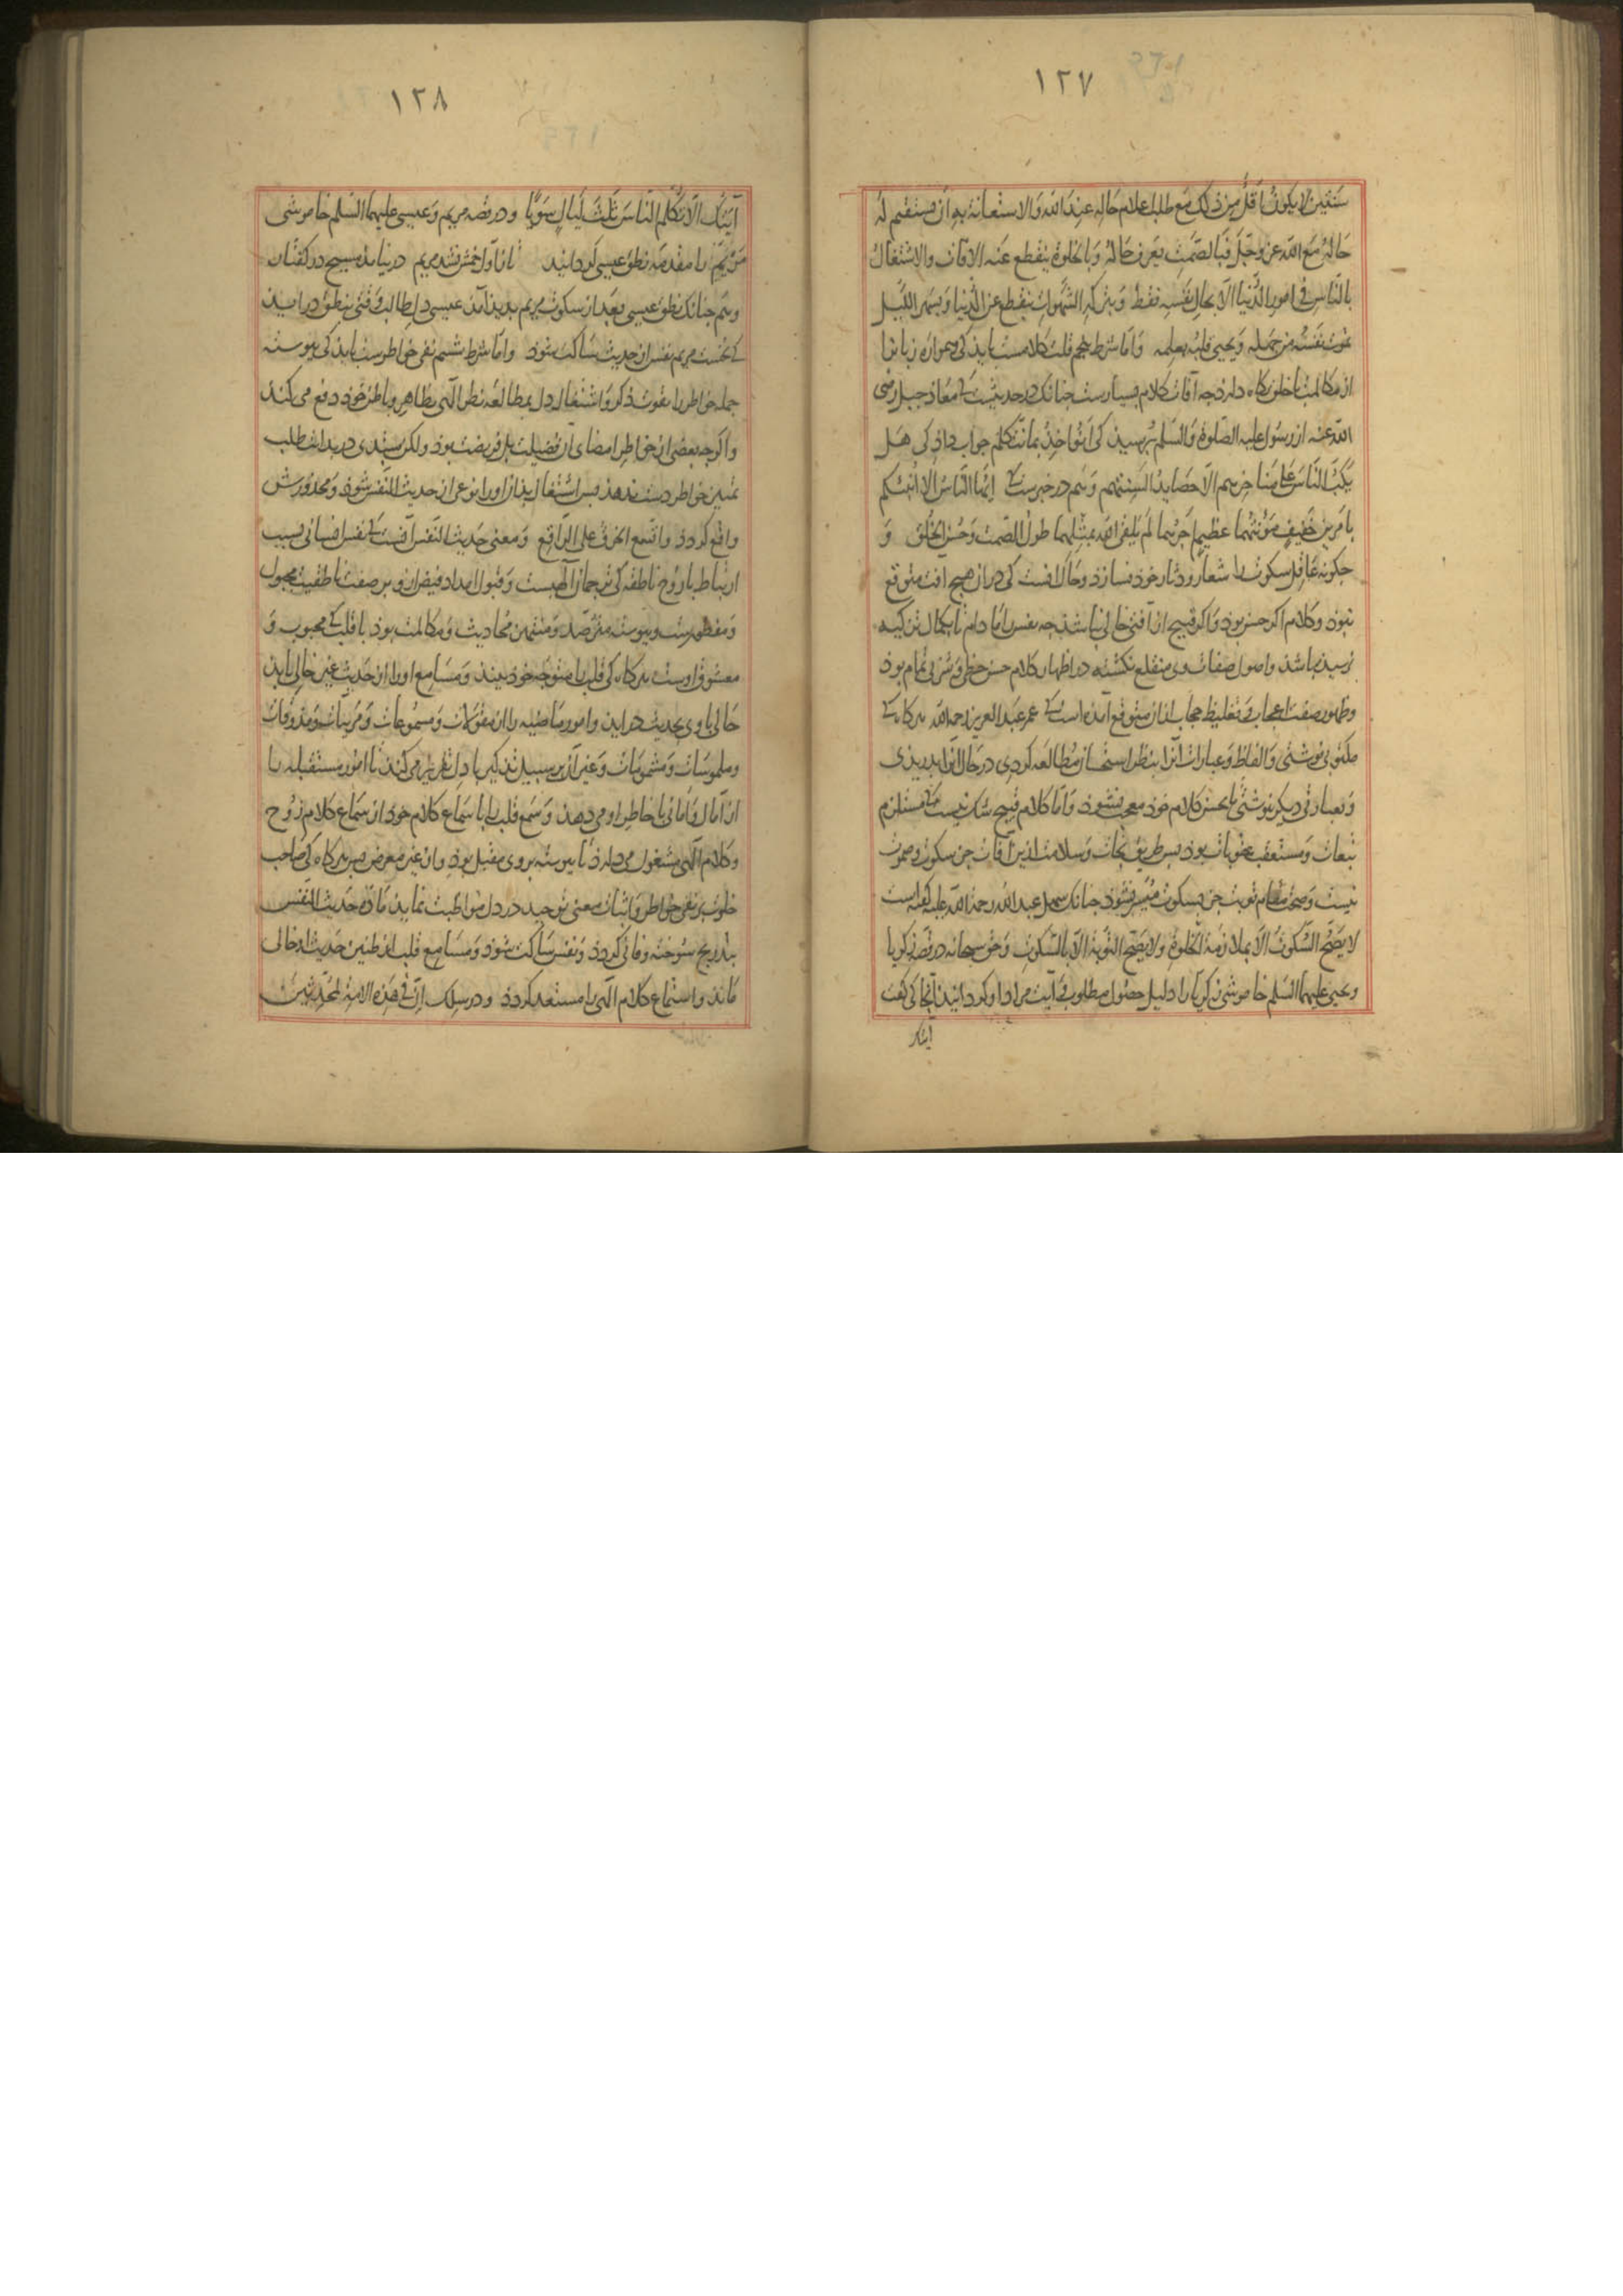 ١٢٧
سنتین لا یکون اقل من ذلک مع طلب اعلام حاله عند الله والاستعانة به ان یستقیم له
حاله مع الله عز وجل فبالصمت یعرف حاله وبالخلوة ینقطع عنه الآفات والاشتغال
بالناس فی امور الدنیا الا بحال نفسه فقط وبترکه الشهوات ینقطع عن الدنیا وبسهر اللیل
یموت نفسه من جهله ویحیی قلبه بعلمه واما شرط پنجم قلت کلامست باید کی همواره زبانرا
از مکالمت با خلق نگاه دارد چه آفات کلام بسیارست چنانک در حدیثیست که معاذ جبل رضی
الله عنه از رسول علیه الصلوة والسلم بپرسید کی انؤاخذ بما نتکلم جواب داد کی هل
یکب الناس علی مناخرهم الا حصاید السنتهم وهم در خبرست که
بامرین خفیف مؤنتهما عظیم اجرهما لم یلقی الله بمثلهما طول الصمت وحسن الخلق و
چکونه عاقل سکوت را شعار و دثار خود نسازد و حال آنست کی در آن هیچ آفت متوقع
نبود وکلام اگر حسن بود واگر قبیح از آفتی خالی نباشد چه نفس را مادام تا بکمال تزکیه
نرسیده باشد واصول صفات وی منقلع نکشته در اظهار کلام حسن حظی وشربی تمام بود
وظهور صفت اعجاب وتغلیظ حجاب از آن متوقع آورده است که عمر عبد العزیز رحمه الله هرگاه که
مکتوبی نوشتی والفاظ وعبارات آنرا بنظر استحسان مطالعه کردی در حال آنرا بدریدی
وبعبارتی دیگر نوشتی تا بحسن کلام خود معجب نشود واما کلام قبیح شک نیست که مستلزم
تبعات ومستعقب عقوبات بود پس طریق نجات وسلامت از این آفات جز سکوت وصموت
نیست وصحت مقام توبت جز بسکوت میسر نشود چنانک سهل عبد الله رحمة الله علیه گفته است
لا یصح السکوت الا بملازمة الخلوة ولا یصح التوبة الا بالسکوت وحق سبحانه در قصه زکریا
ویحیی علیهما السلم خاموشی زکریا را دلیل حصول مطلوب وآیت مراد او گردانید آنجا کی گفت
آیتک
١٢٨
آیتک الا تکلم الناس ثلث لیال سویا ودر قصه مریم وعیسی علیهما السلم خاموشی
مریم را مقدمه نطق عیسی گردانید تا ز اول خمش نشد مریم در نیامد مسیح در گفتار
وهم چنانک نطق عیسی بعد از سکوت مریم پدید آمد عیسی دل طالب وقتی بنطق در آید
که نخست مریم نفس از حدیث ساکت شود واما شرط ششم نفی خواطرست باید کی پیوسته
جمله خواطر را بقوت ذکر واشتغال دل بمطالعه نظر الهی بظاهر وباطن خود دفع می کند
واگرچه بعضی از خواطر امضای آن فضیلت بل فریضت بود ولکن مبتدی در بدایت طلب
تمییز خواطر دست ندهد پس اشتغال بدان او را نوعی از حدیث النفس شود ومحذورش
واقع گردد واتسع الخرق علی الراقع ومعنی حدیث النفس آنست که نفس انسانی بسبب
ارتباط با روح ناطقه کی ترجمان الهیست وقبول امداد فیض از وی بر صفت ناطقیت مجبول
ومفطورست وپیوسته مترصد ومنتهز محادثت ومکالمت بود با قلب که محبوب و
معشوق اوست هرگاه کی قلب را متوجه خود بیند ومسامع او را از حدیث غیر خالی یابد
حالی با وی بحدیث در آید وامور ماضیه را از مقولات ومسموعات ومرئیات ومذوقات
وملموسات ومشمومات وغیر آن بر سبیل تذکیر با دل تقریر می کند تا امور مستقبله را
از آمال وامانی با خاطر او می دهد وسمع قلب را با سماع کلام خود از سماع کلام روح
وکلام الهی مشغول می دارد تا پیوسته بروی مقبل بود واز غیر معرض پس هرگاه کی صاحب
خلوت بر نفی خواطر واثبات معنی توحید در دل مواظبت نماید ماده حدیث النفس
بتدریج سوخته وفانی گردد ونفس ساکت شود ومسامع قلب از طنین حدیث او خالی
ماند واستماع کلام الهی را مستعد گردد ودر سلک ان فی هذه الامة لمحدثین